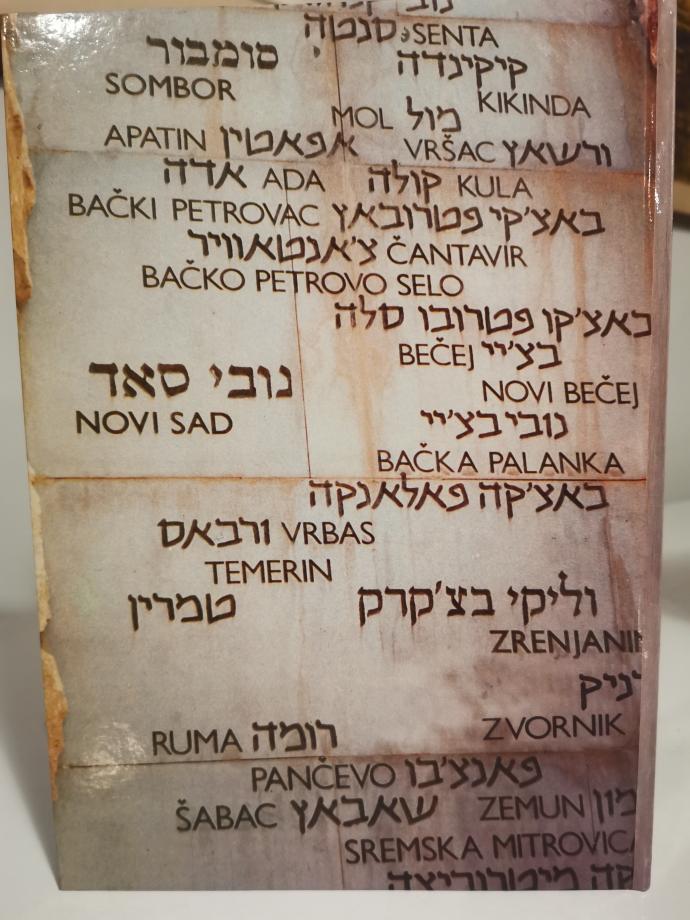 סנטה SENTA
סומבור
קיקינדה
SOMBOR
KIKINDA
MOL מול
APATIN אפאטין
VRŠAC ורשאץ
אדה ADA
קולה KULA
BAČKI PETROVAC באצ'קי פטרובאץ
צ'אנטאוויר ČANTAVIR
BAČKO PETROVO SELO
באצ'קו פטרובו סלה
BEČEJ בצ'יי
נובי סאד
NOVI BEČEJ
NOVI SAD
נובי בצ'יי
BAČKA PALANKA
באצ'קה פאלאנקה
ורבאס VRBAS
TEMERIN
טמרין
וליקי בצ'קרק
ZRENJANI
ניק
RUMA רומה
ZVORNIK
PANČEVO פאנצ'בו
ŠABAC שאבאץ
ZEMUN מון
SREMSKA MITROVICA
קה מיטרוביצה